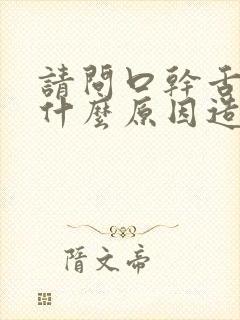 請問口幹舌
什麼原因造
隋文帝